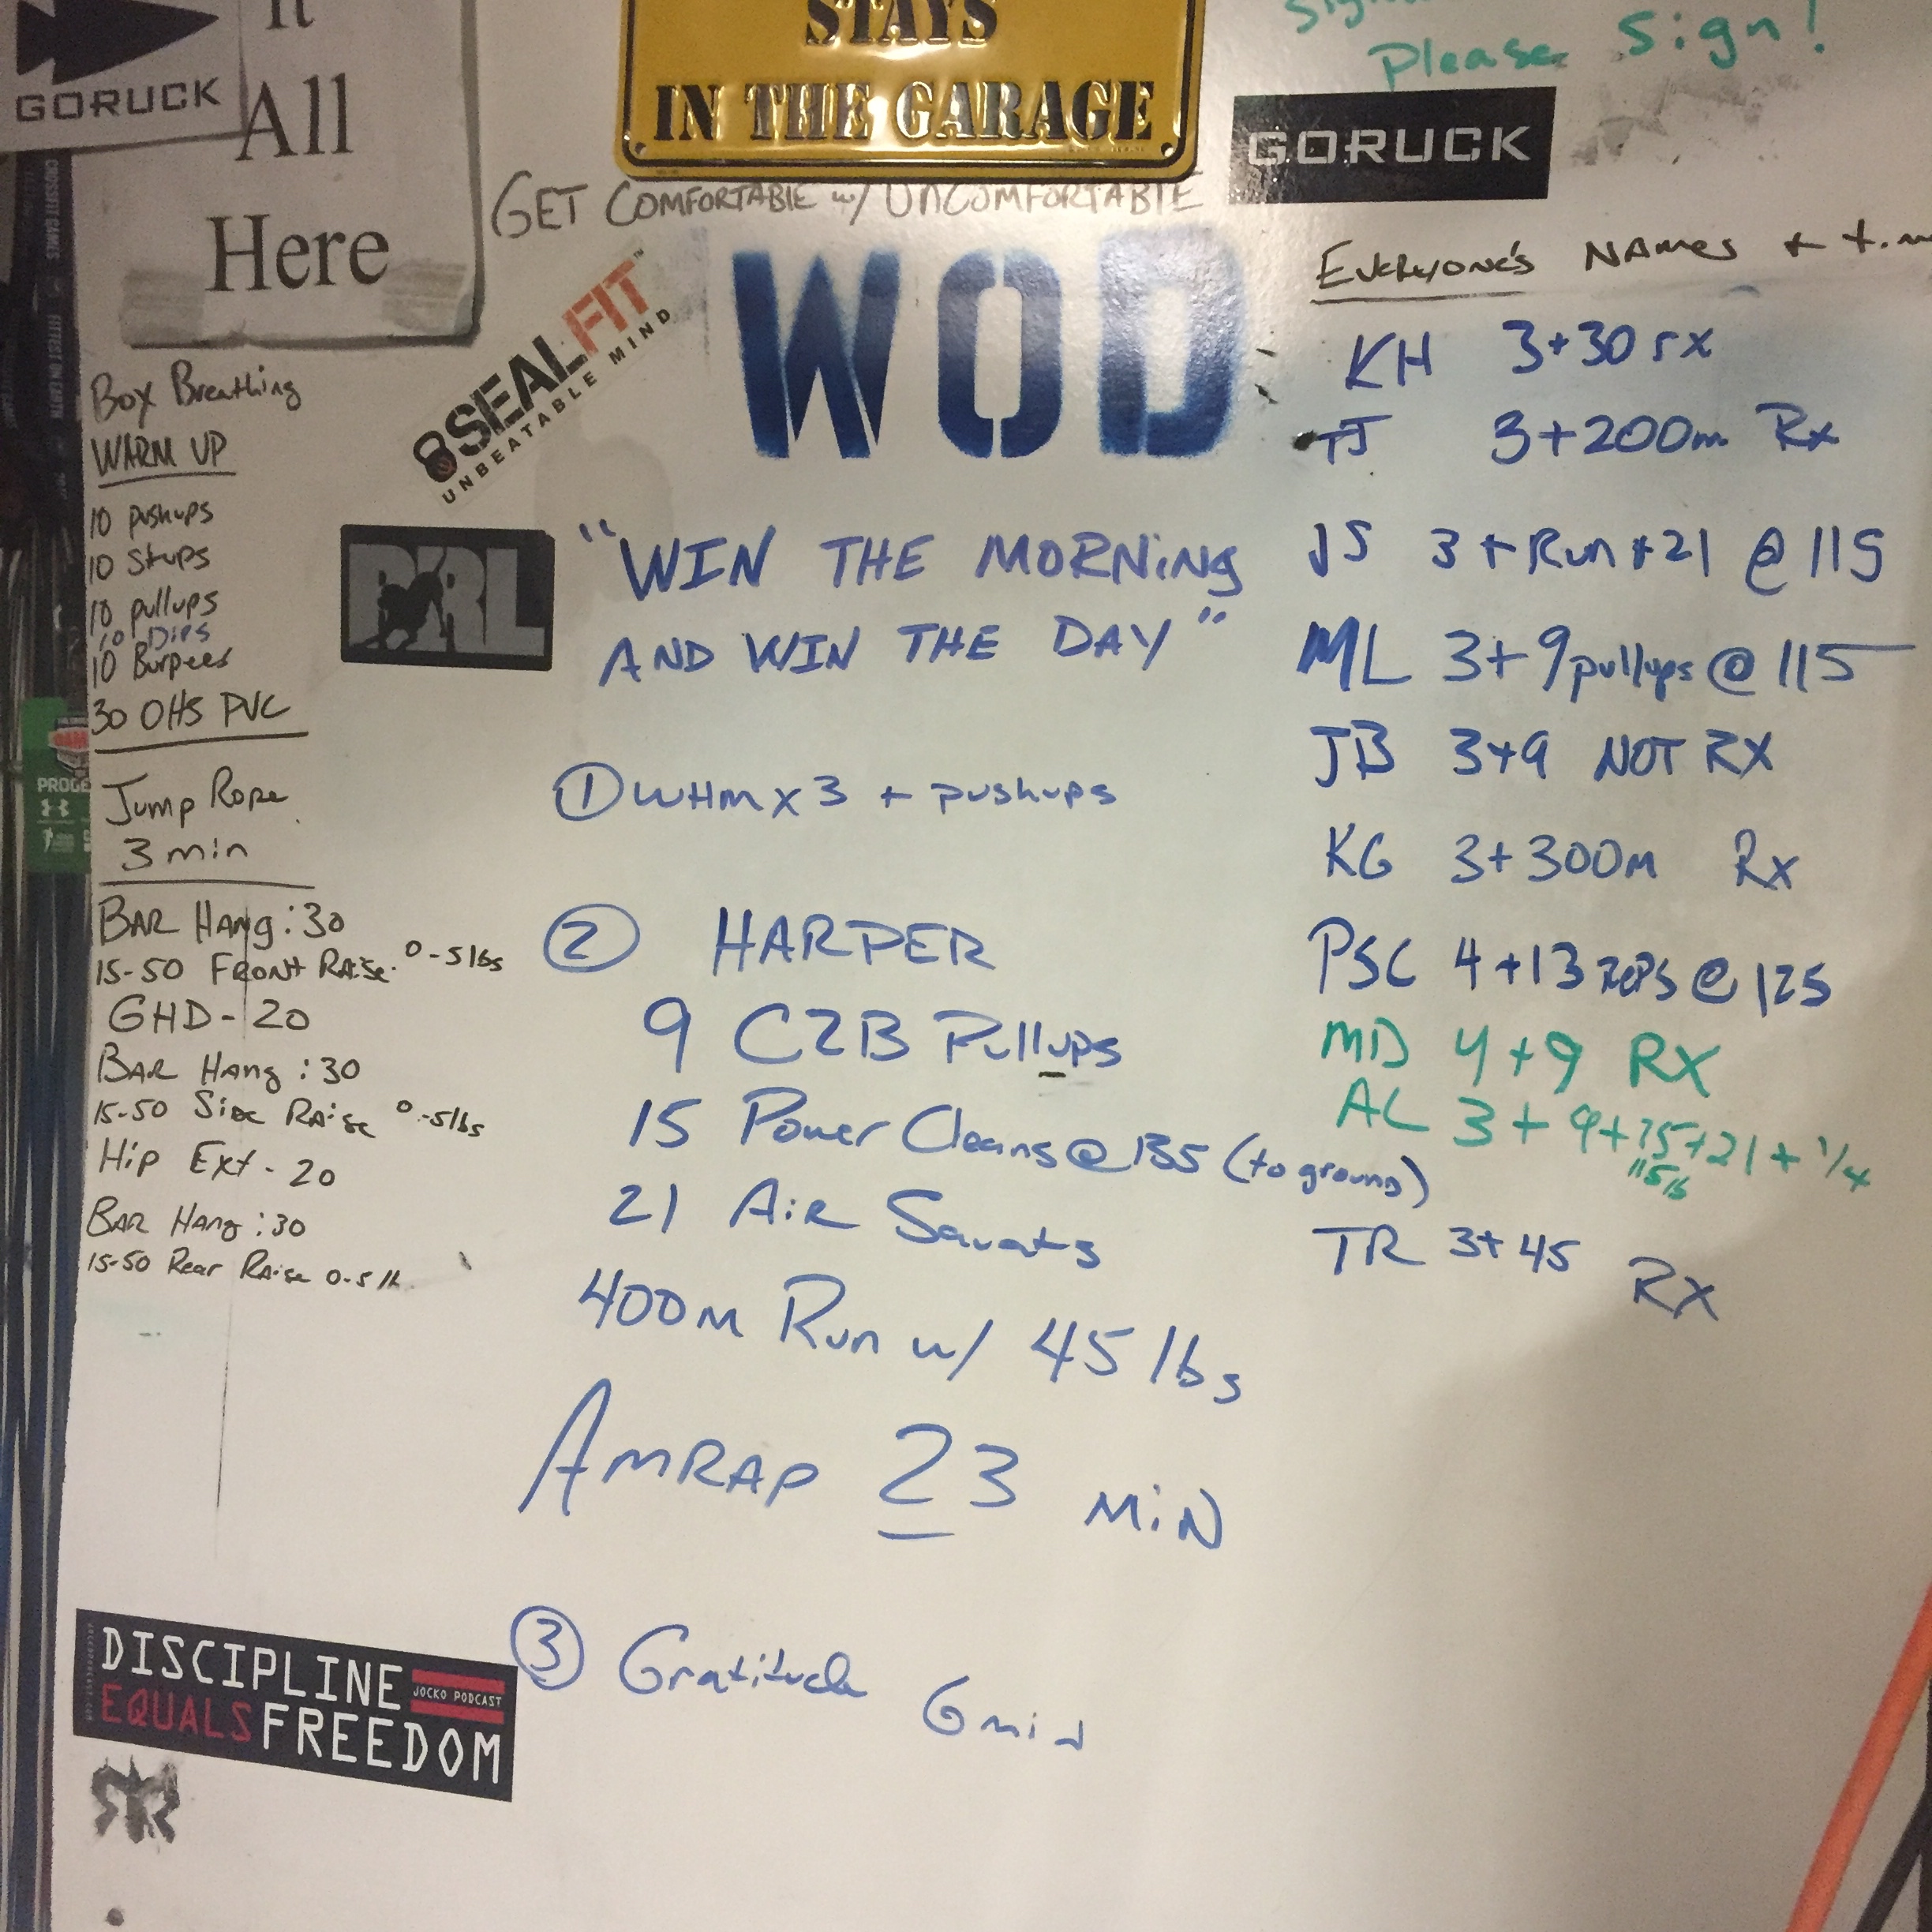 It
All
Here
GORUCK
STAYS
IN THE GARAGE
Please Sign!
GORUCK
GET COMFORTABLE w/ UNCOMFORTABLE
8SEALFIT™
UNBEATABLE MIND
WOD
Box Breathing
WARM UP
10 pushups
10 Situps
10 pullups
10 Dips
10 Burpees
30 OHS PVC
Jump Rope
3 min
BAR Hang :30
15-50 Front Raise 0-5lbs
GHD - 20
BAR Hang :30
15-50 Side Raise 0-5lbs
Hip Ext - 20
BAR Hang :30
15-50 Rear Raise 0-5 lb
"WIN THE MORNiNg
AND WIN THE DAY"
① WHM x 3 + pushups
② HARPER
9 C2B Pullups
15 Power Cleans @ 135 (to ground)
21 Air Squats
400m Run w/ 45 lbs
AMRAP 23 MiN
③ Gratitude 6 min
Everyone's NAMES +
KH 3+30 rx
TJ 3+200m Rx
JS 3+Run+21 @ 115
ML 3+9 pullups @ 115
JB 3+9 NOT RX
KG 3+300m Rx
PSC 4+13 REPS @ 125
MD 4+9 RX
AL 3+9+15+21+1/4
115lb
TR 3+45 RX
DISCIPLINE
EQUALS FREEDOM
JOCKO PODCAST